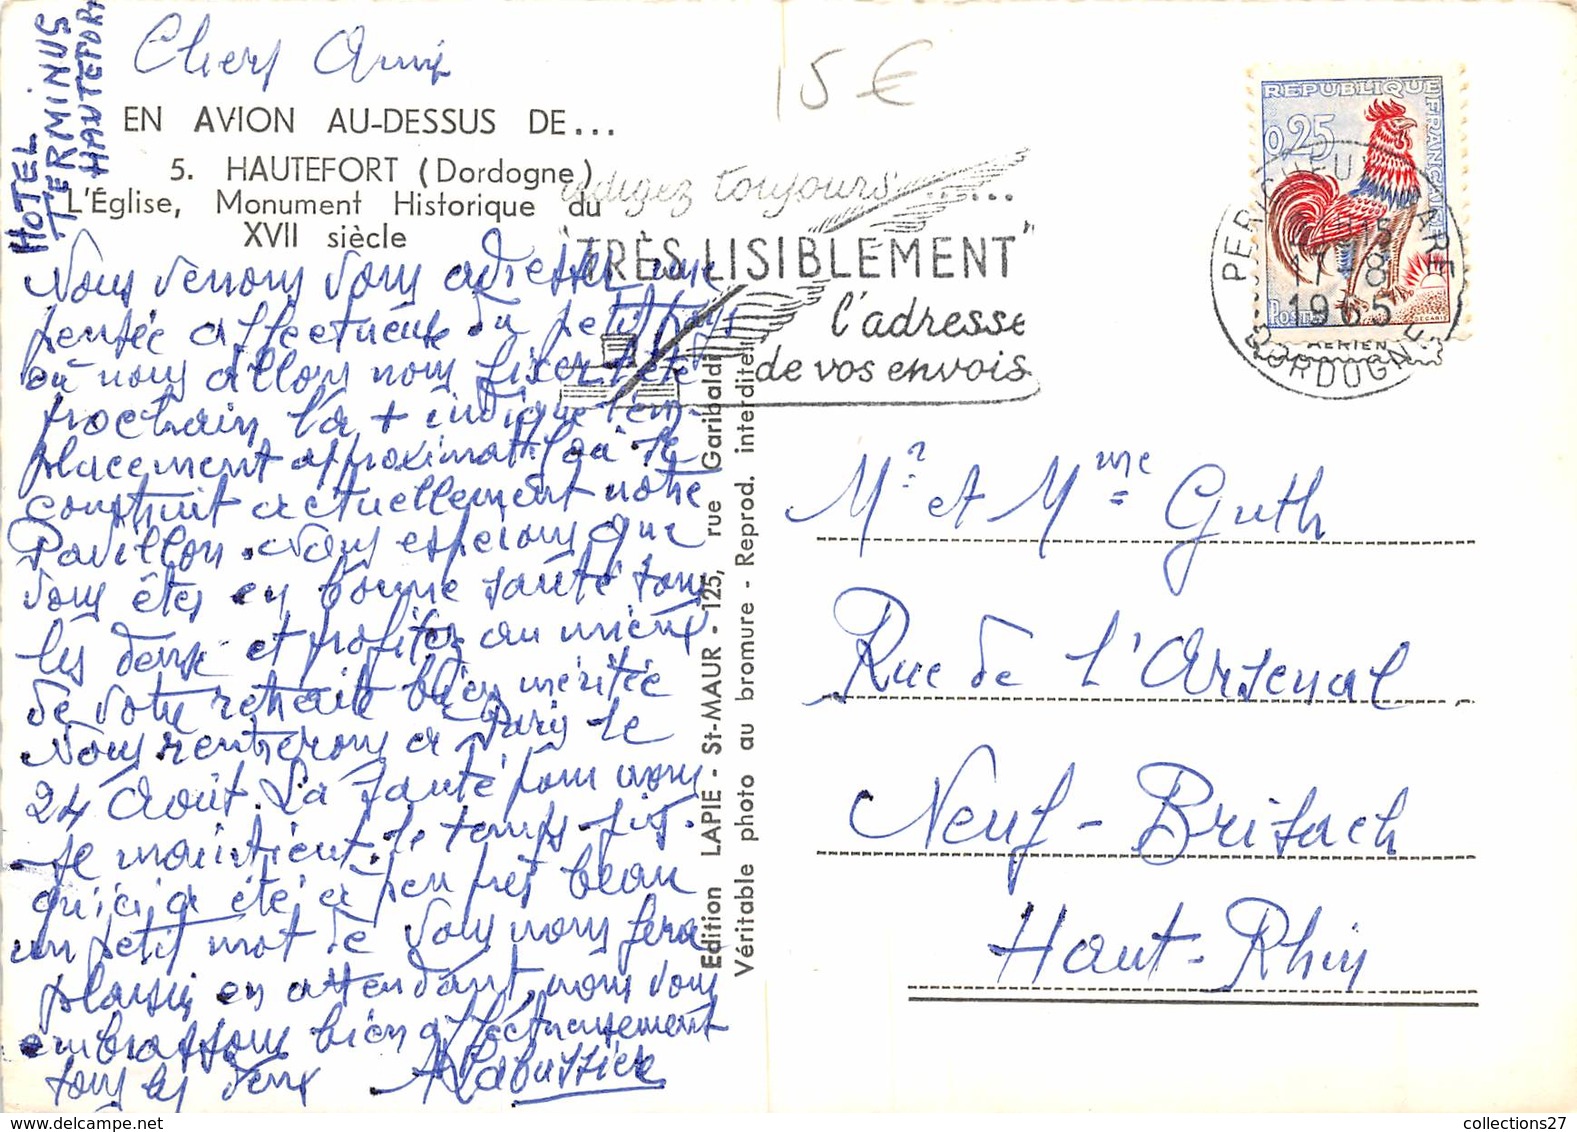 HOTEL
TERMINUS
HAUTEFORT
Chers Amis
15 €
EN AVION AU-DESSUS DE...
5. HAUTEFORT (Dordogne)
L'Église, Monument Historique du
XVII siècle
Nous venons vous adresser une
pensée affectueuse du petit pays
où nous allons nous fixer l'été
prochain la + indique l'em-
placement approximatif où se
construit actuellement notre
Pavillon. nous espérons que
vous êtes en bonne santé tous
les deux et profitez au mieux
de votre retraite bien méritée
Nous rentrerons à Paris le
24 Août. La santé pour nous
se maintient. le temps jus-
qu'ici a été à peu près beau
un petit mot de vous nous fera
plaisir, en attendant, nous vous
embrassons bien affectueusement
tous les deux ALabussière
Edition LAPIE - St-MAUR - 125, rue Garibaldi
Véritable photo au bromure - Reprod. interdite
rédigez toujours ...
"TRÈS LISIBLEMENT"
l'adresse
de vos envois
REPUBLIQUE FRANÇAISE
0,25
POSTES
DECARIS
PERIGUEUX GARE
17-8
1965
DORDOGNE
AERIEN
Mr et Mme Guth
Rue de l'Arsenal
Neuf-Brisach
Haut-Rhin
collections27